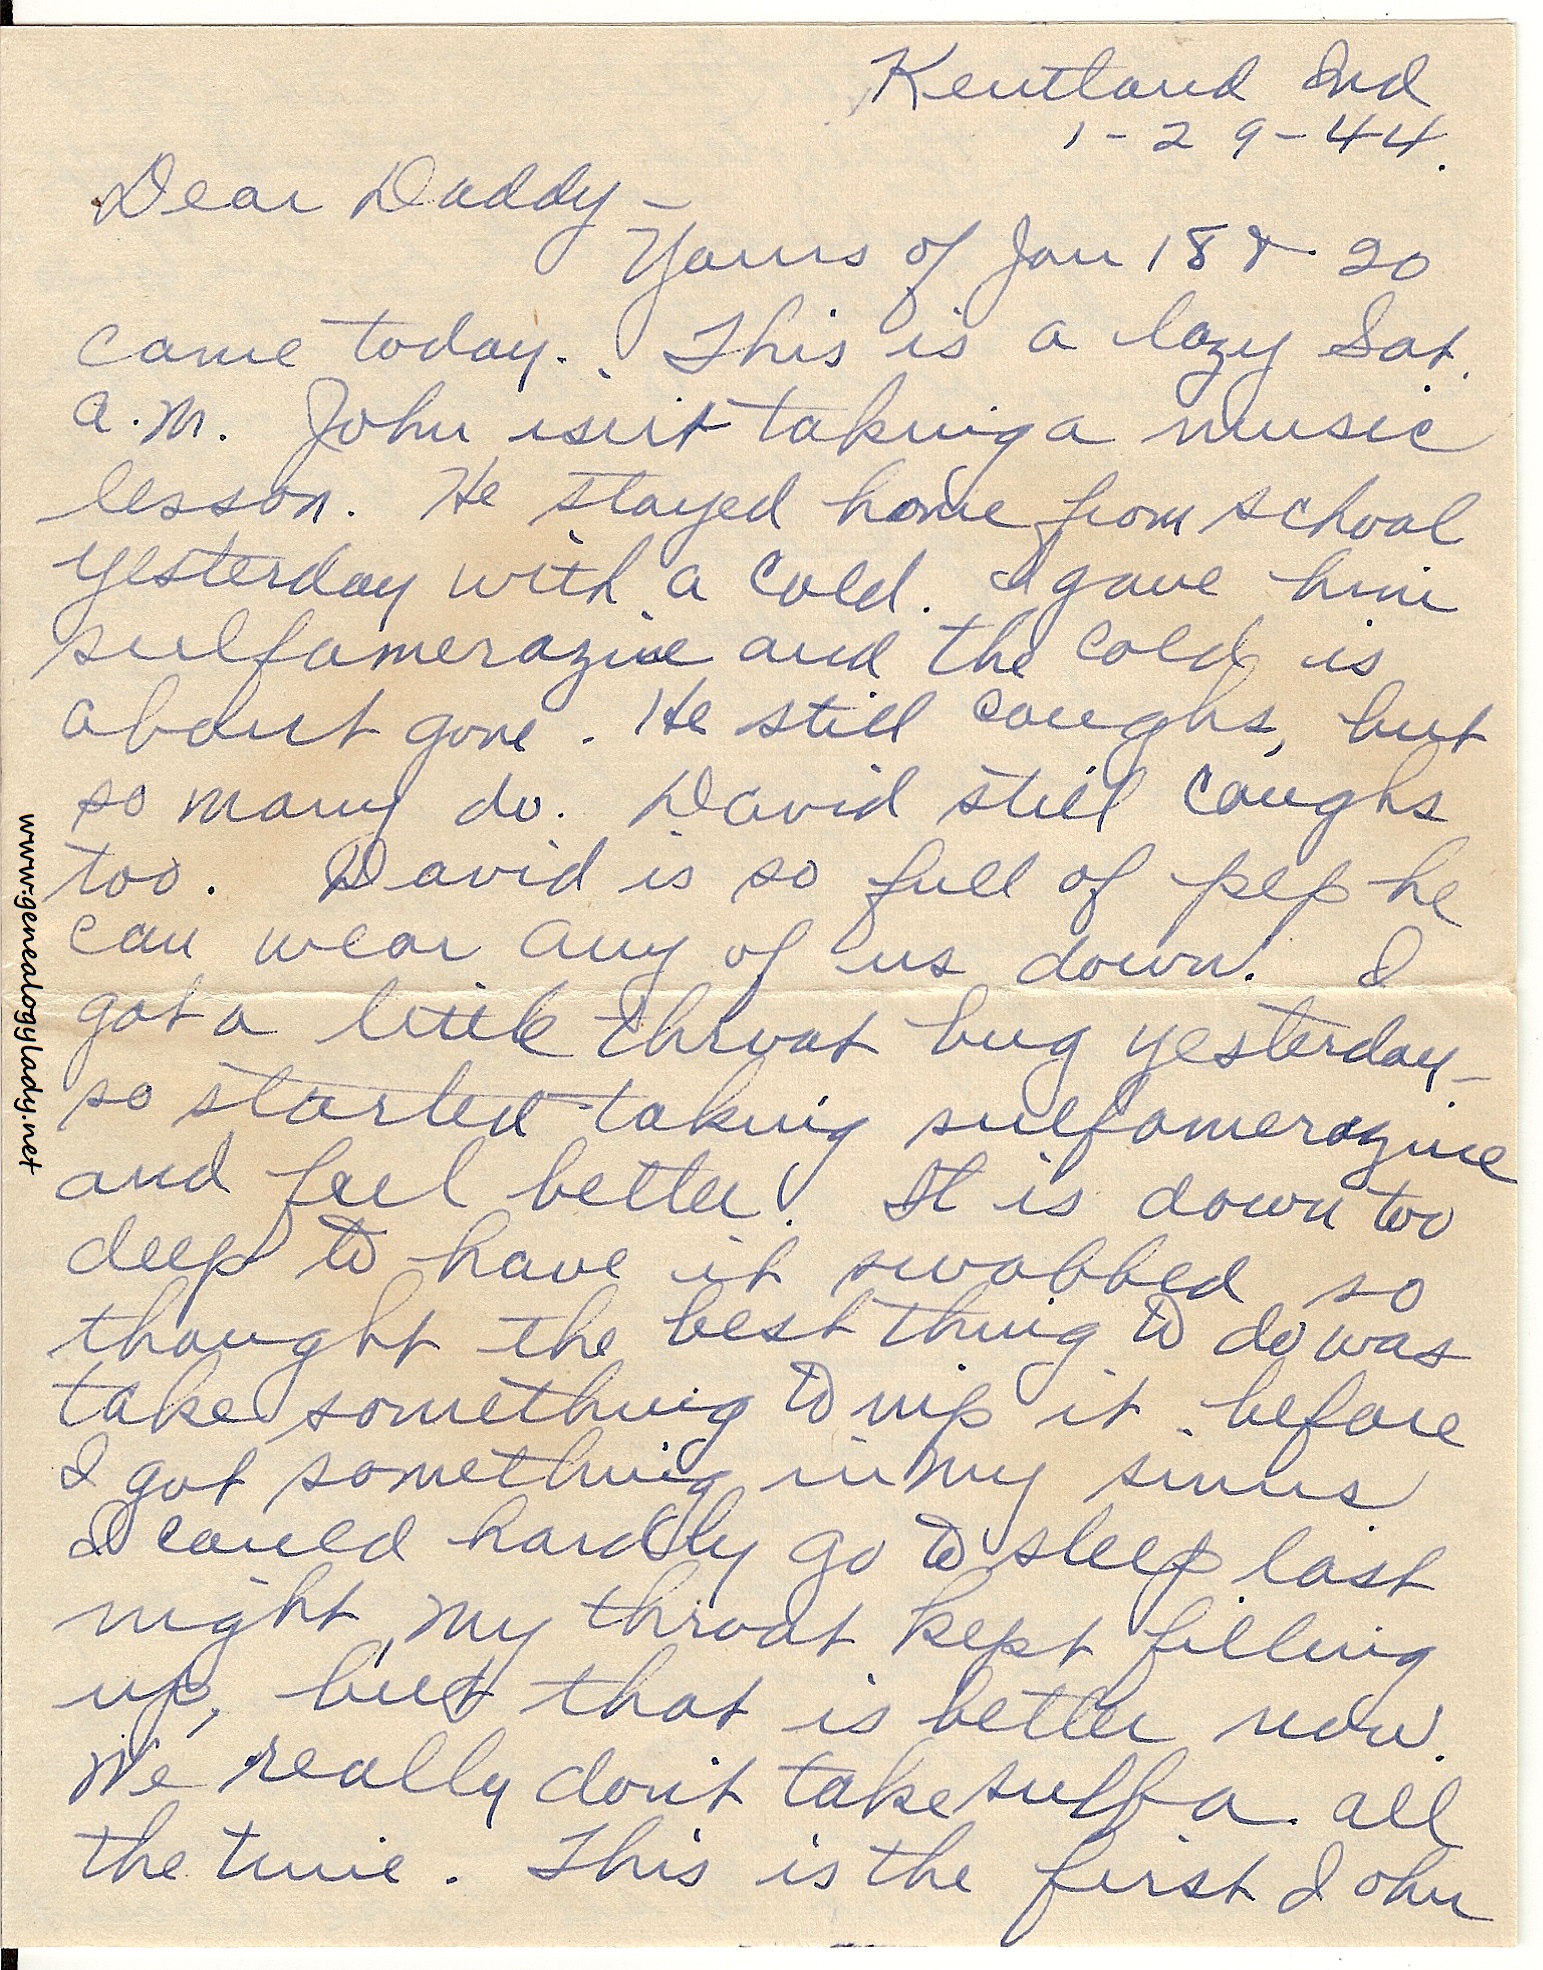 Kentland Ind
1-29-44.
Dear Daddy -
Yours of Jan 18 & 20
came today. This is a lazy Sat.
a.m. John isn't taking a music
lesson. He stayed home from school
yesterday with a cold. I gave him
sulfamerazine and the cold is
about gone. He still coughs, but
so many do. David still coughs
too. David is so full of pep he
can wear any of us down. I
got a little throat bug yesterday -
so started taking sulfamerazine
and feel better. It is down too
deep to have it swabbed so
thought the best thing to do was
take something to nip it before
I got something in my sinus
I could hardly go to sleep last
night, my throat kept filling
up, but that is better now.
We really don't take sulfa all
the time. This is the first John
www.genealogylady.net